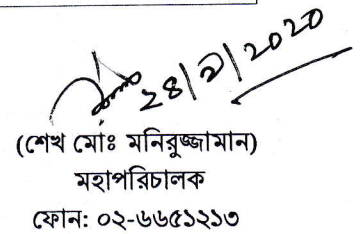 ২৪/২/২০২০
(শেখ মোঃ মনিরুজ্জামান)
মহাপরিচালক
ফোন: ০২-৬৬৫১২১৩